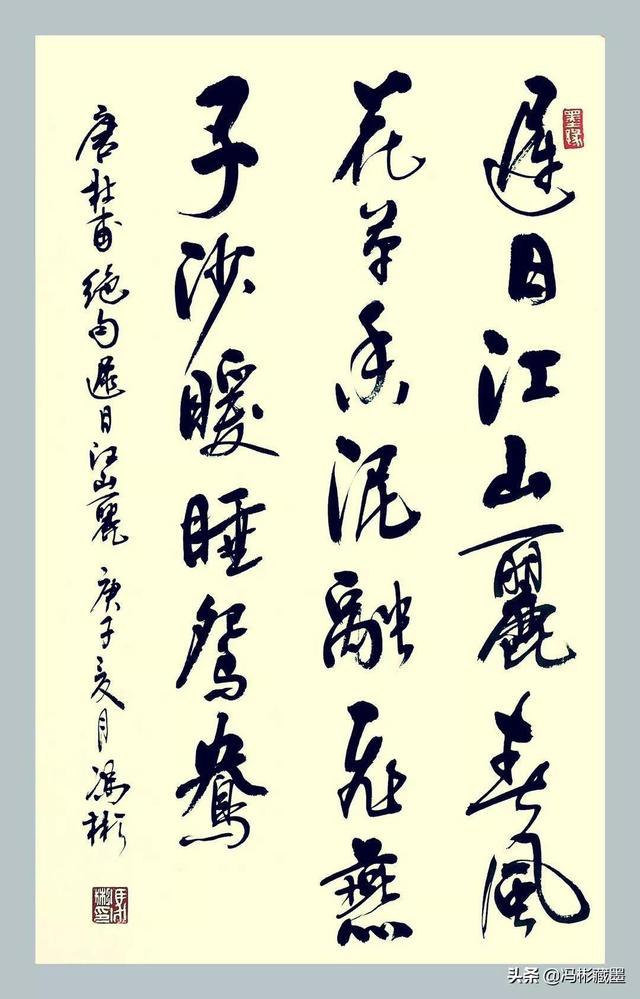 遲日江山麗春風
花草香泥融飛燕
子沙暖睡鴛鴦
唐杜甫絕句遲日江山麗 庚子亥月 馮彬
墨緣
头条 @冯彬藏墨